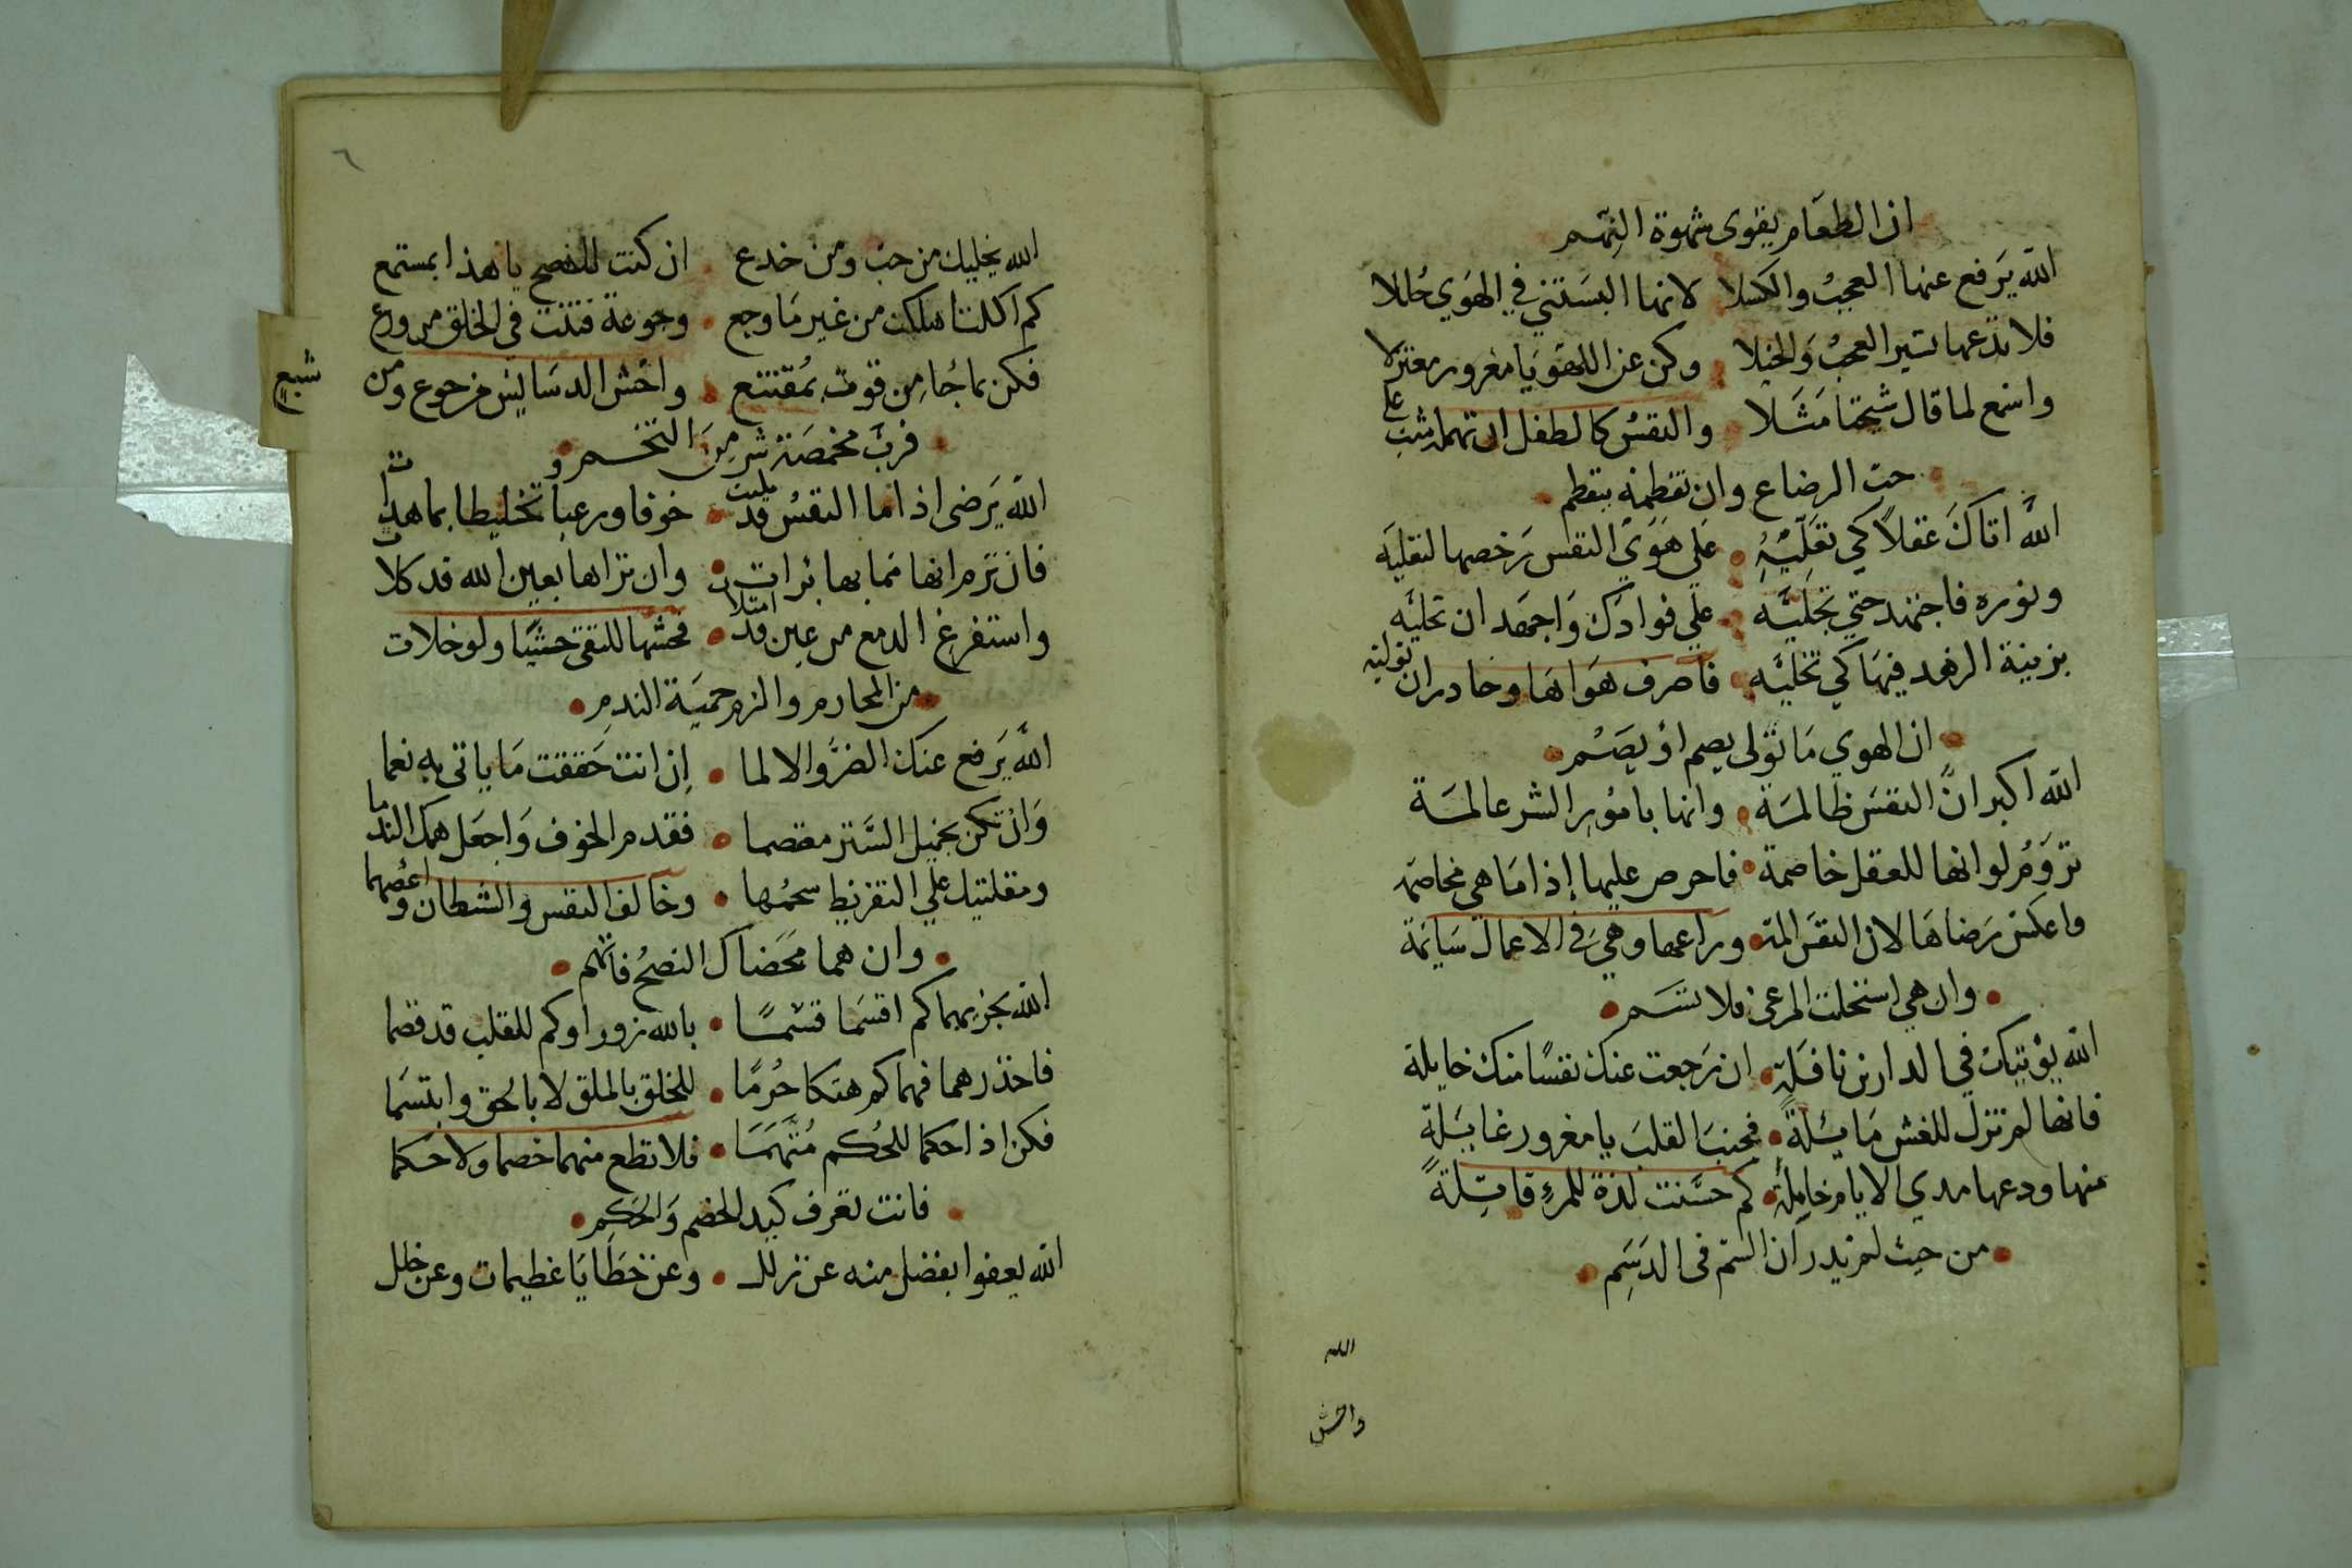 ان الطعام يقوى شهوة النهم
الله يرفع عنها العجب والكسلا لانها البستني في الهوي حللا
فلا تدعها تسير العجب والخيلا وكن عن اللهو يا مغرور معتزلا
واسمع لما قال شيخنا مثلا والنفس كالطفل ان تهمله شب علي
حب الرضاع وان تفطمه ينفطم
الله اتاك عقلا كي تقليه علي هوي النفس رخصها لتقليه
ونوره فاجتهد حتي تجليه علي فوادك واجهد ان تحليه
بزينة الزهد فيها كي تخليه فاصرف هواها وحاذر ان توليه
ان الهوي ما تولى يصم او يصم
الله اكبر ان النفس ظالمة وانها بامور الشر عالمة
تروم لو انها للعقل خاصمة فاحرص عليها إذا ما هي مخاصمة
واعكس رضاها لان النفس المة وراعها وهي في الاعمال سايمة
وان هي استحلت المرعى فلا تسم
الله يؤتيك في الدارين نافلة ان رجعت عنك نفسا منك خايلة
فانها لم تزل للغش مايلة فجنب القلب يا مغرور غايلة
عنها ودعها مدي الايام خاملة كم حسنت لذة للمرء قاتلة
من حيث لم يدر ان السم في الدسم
الله
واخش
٦
الله يخليك من خب ومن خدع ان كنت للنصح يا هذا بمستمع
كم اكلت اهلكت من غير ما وجع وجوعة فتنت في الخلق من ورع
فكن بما جا من قوت بمقتنع واخش الدسايس من جوع ومن شبع
فرب مخمصة شر من التخم
الله يرضى اذا ما النفس قد مليت خوفا ورعبا وتخليطا بما هدات
فان ترم انها مما بها برات وان تراها بعين الله قد كلات
واستفرغ الدمع من عين قد امتلات فحثها للتقي حثيا ولو خلات
من المحارم والزم حمية الندم
الله يرفع عنك الضر والالما إن انت حققت ما ياتى به نعما
وان تكن بجميل الستر معتصما فقدم الخوف واجعل همك الندما
ومقلتيك علي التفريط سحمها وخالف النفس والشطان واعصهما
وان هما محضاك النصح فاتهم
الله يجزيهما كم اقسما قسما بالله زورا وكم للقلب قد قصما
فاحذرهما فهما كم هتكا حرما للخلق بالملق لا بالحق وابتسما
فكن اذا حكما للحكم متهما فلا تطع منهما خصما ولا حكما
فانت تعرف كيد الخصم والحكم
الله يعفوا بفضل منه عن زلل وعن خطايا عظيمات وعن خلل